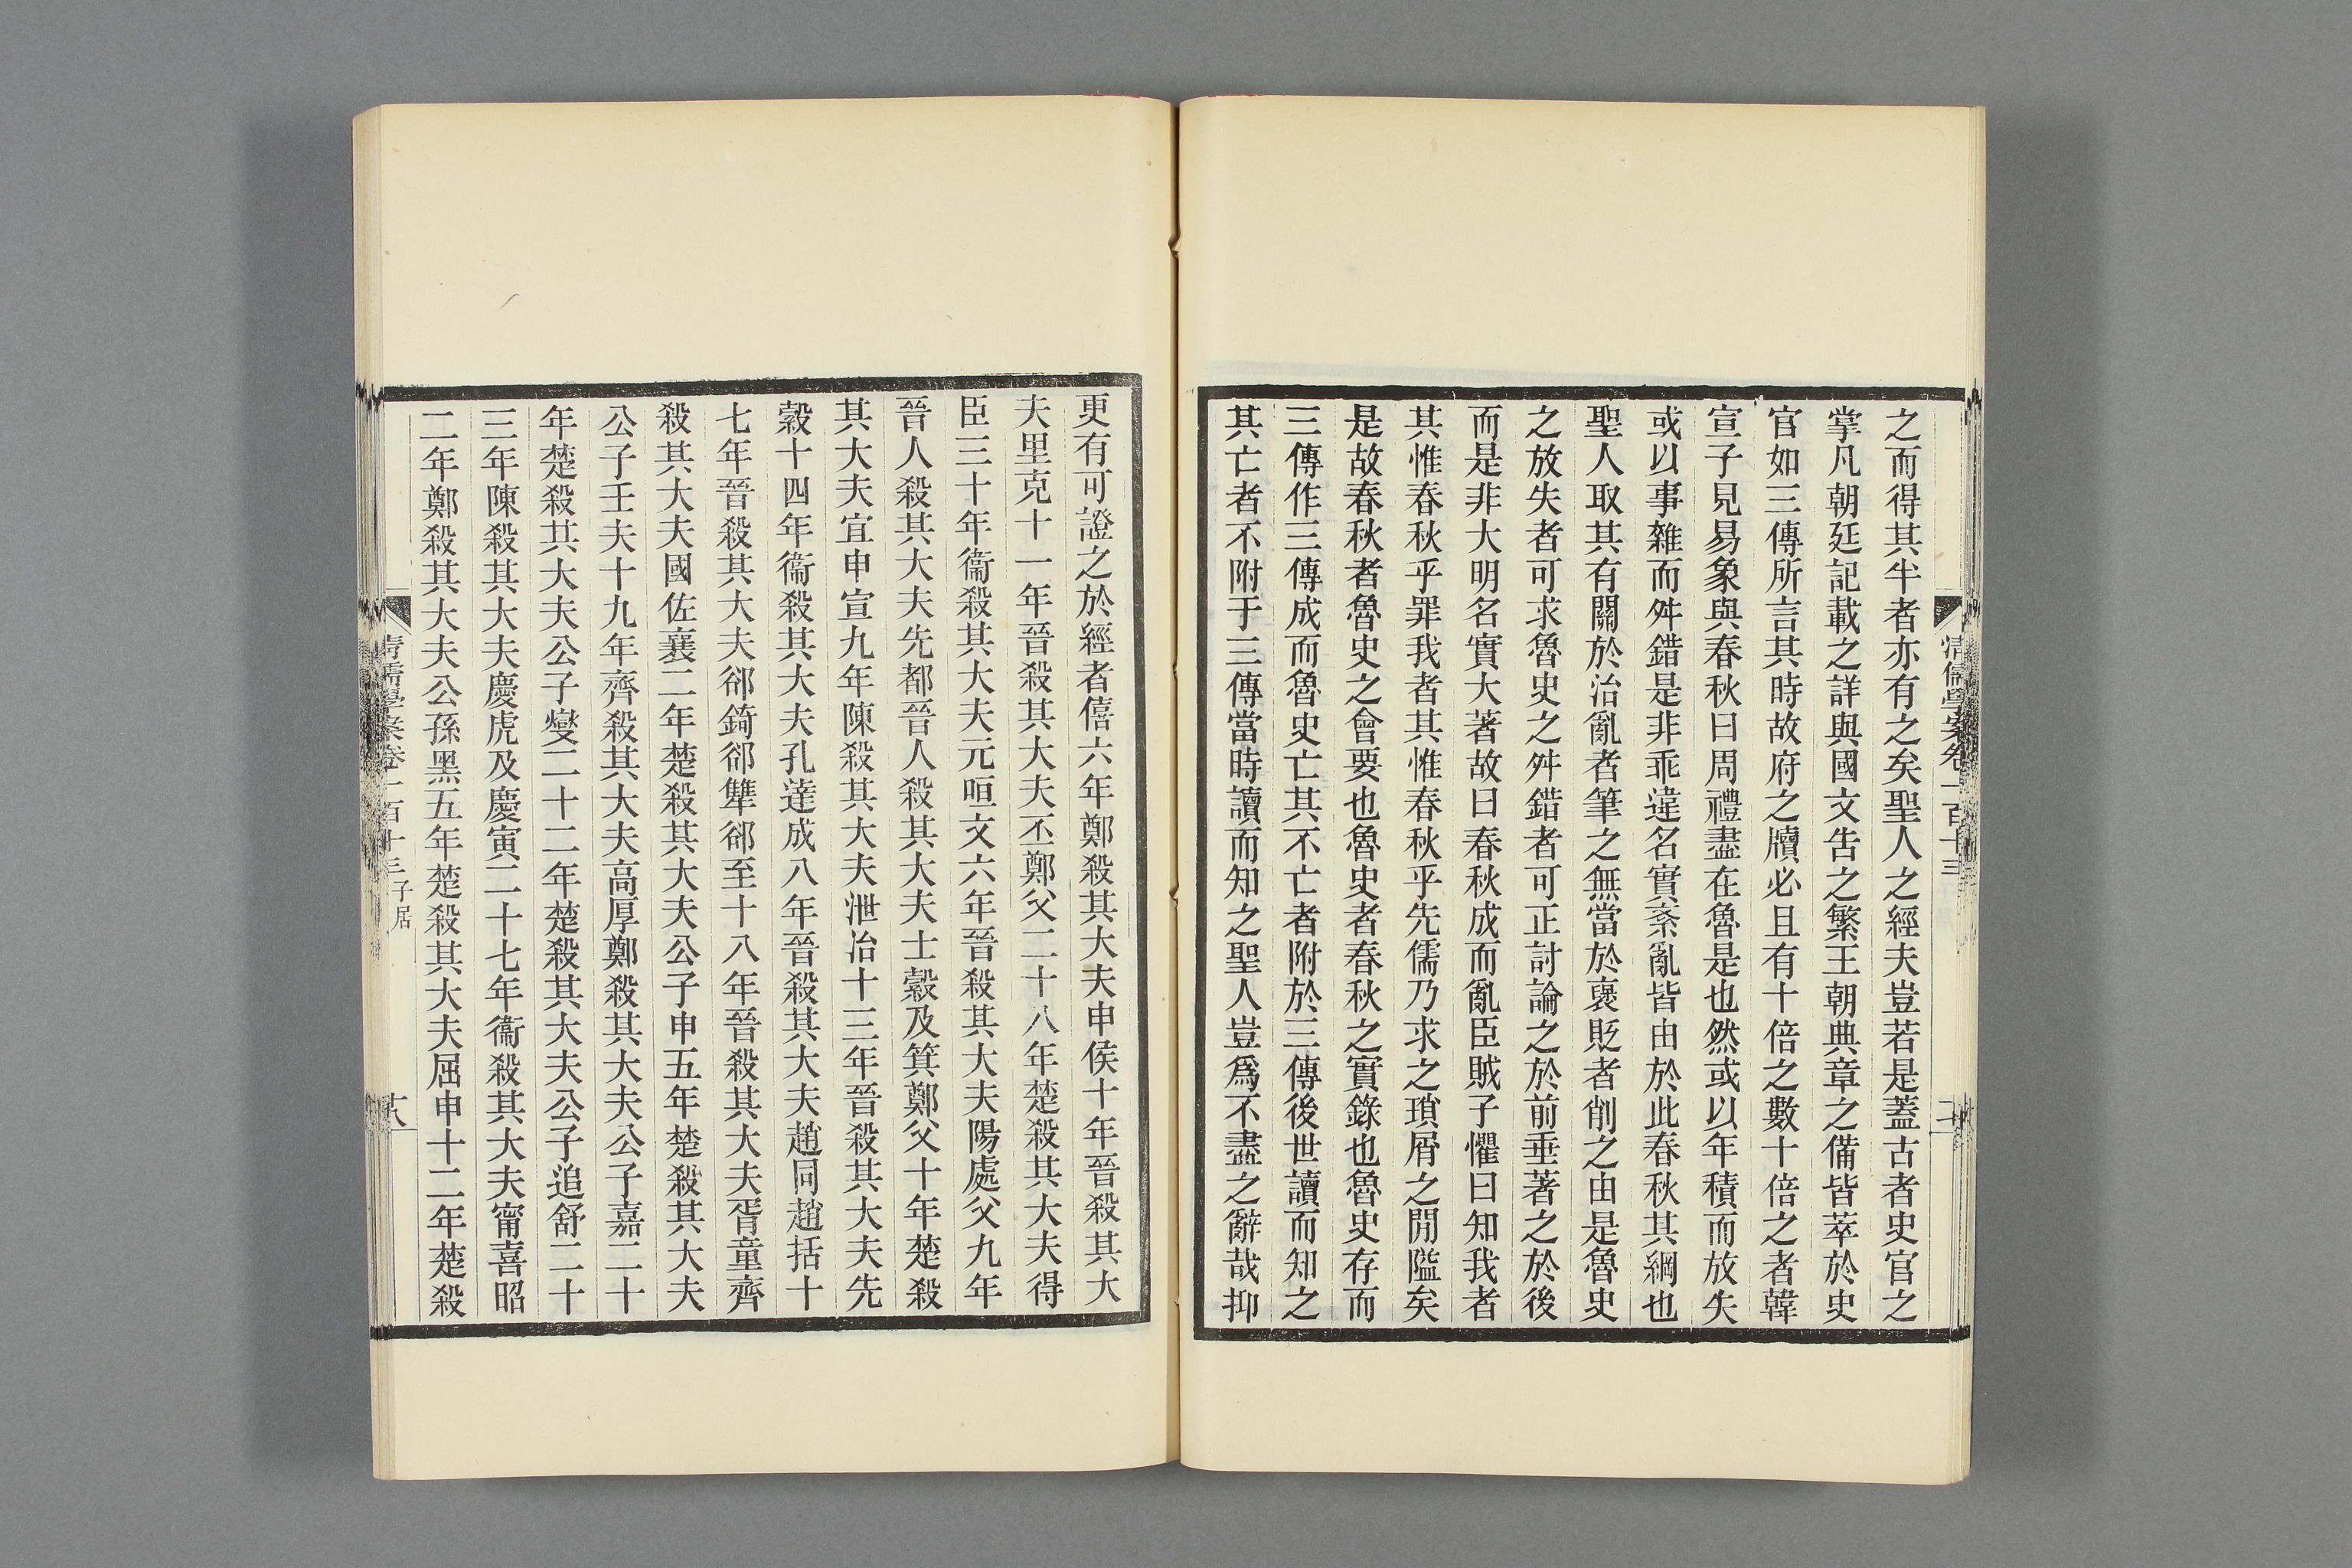 之而得其半者亦有之矣聖人之經夫豈若是蓋古者史官之
掌凡朝廷記載之詳與國文告之繁王朝典章之備皆萃於史
官如三傳所言其時故府之牘必且有十倍之數十倍之者韓
宣子見易象與春秋曰周禮盡在魯是也然或以年積而放失
或以事雜而舛錯是非乖違名實紊亂皆由於此春秋其綱也
聖人取其有關於治亂者筆之無當於褒貶者削之由是魯史
之放失者可求魯史之舛錯者可正討論之於前垂著之於後
而是非大明名實大著故曰春秋成而亂臣賊子懼曰知我者
其惟春秋乎罪我者其惟春秋乎先儒乃求之瑣屑之閒隘矣
是故春秋者魯史之會要也魯史者春秋之實錄也魯史存而
三傳作三傳成而魯史亡其不亡者附於三傳後世讀而知之
其亡者不附于三傳當時讀而知之聖人豈爲不盡之辭哉抑
清儒學案卷一百十三
更有可證之於經者僖六年鄭殺其大夫申侯十年晉殺其大
夫里克十一年晉殺其大夫丕鄭父二十八年楚殺其大夫得
臣三十年衞殺其大夫元咺文六年晉殺其大夫陽處父九年
晉人殺其大夫先都晉人殺其大夫士縠及箕鄭父十年楚殺
其大夫宜申宣九年陳殺其大夫泄冶十三年晉殺其大夫先
縠十四年衞殺其大夫孔達成八年晉殺其大夫趙同趙括十
七年晉殺其大夫郤錡郤犫郤至十八年晉殺其大夫胥童齊
殺其大夫國佐襄二年楚殺其大夫公子申五年楚殺其大夫
公子壬夫十九年齊殺其大夫高厚鄭殺其大夫公子嘉二十
年楚殺其大夫公子燮二十二年楚殺其大夫公子追舒二十
三年陳殺其大夫慶虎及慶寅二十七年衞殺其大夫甯喜昭
二年鄭殺其大夫公孫黑五年楚殺其大夫屈申十二年楚殺
清儒學案卷一百十三 子居
十八